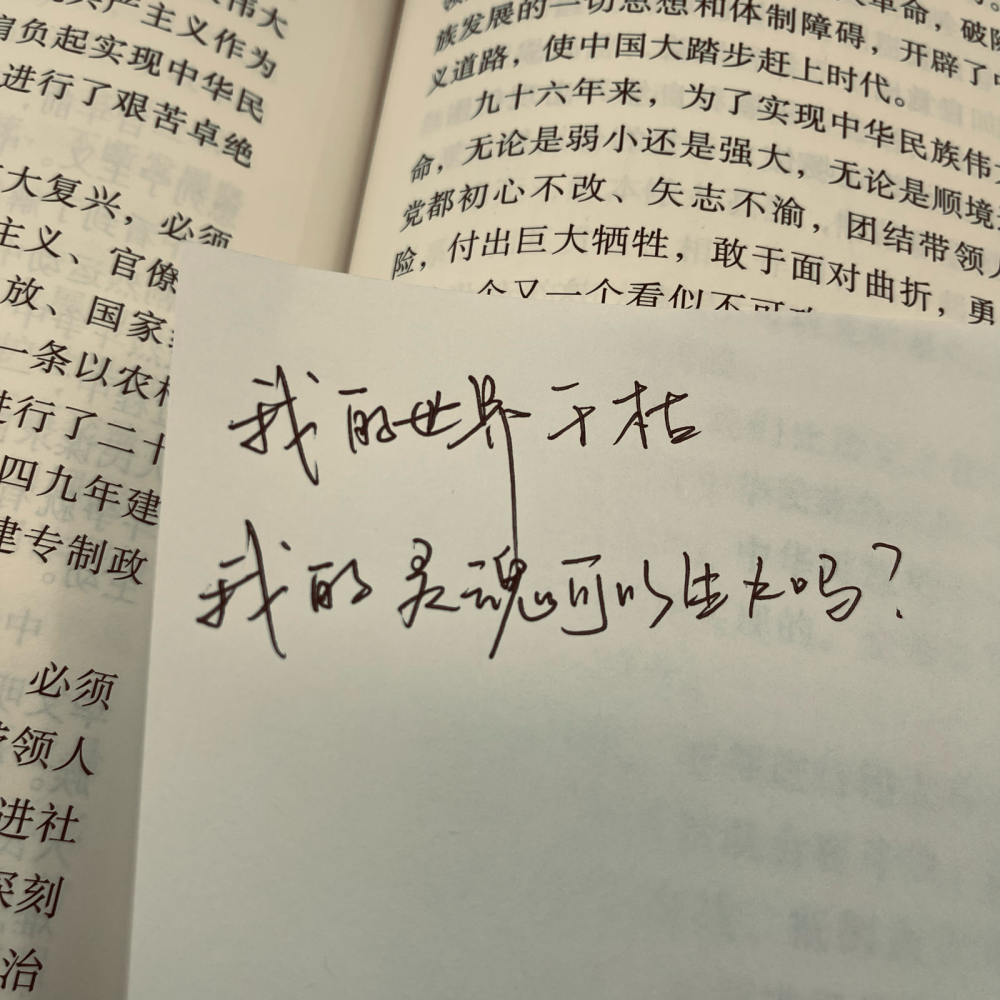 伟大
产主义作为
肩负起实现中华民
进行了艰苦卓绝
大复兴，必须
主义、官僚
放、国家
一条以农村
进行了二十
四九年建
建专制政
必须
带领人
进社
深刻
治
革命，破除
族发展的一切思想和体制障碍，开辟了中
义道路，使中国大踏步赶上时代。
九十六年来，为了实现中华民族伟大
命，无论是弱小还是强大，无论是顺境
党都初心不改、矢志不渝，团结带领人
险，付出巨大牺牲，敢于面对曲折，勇
一个又一个看似不可
我的世界干枯
我的灵魂可以生火吗？